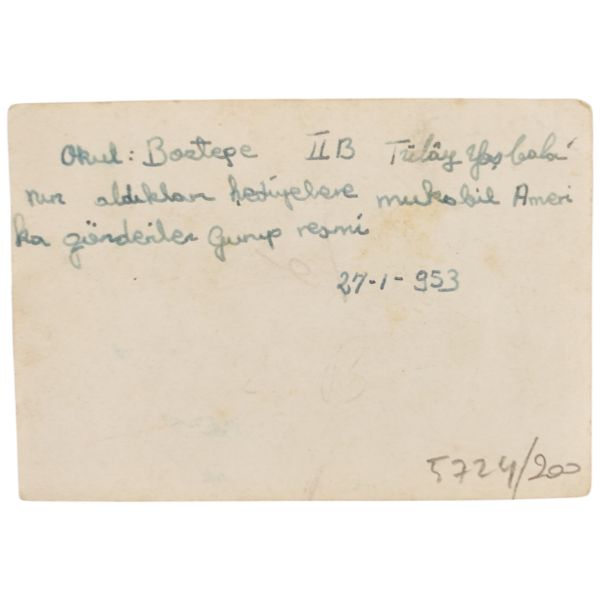 Okul: Boztepe IIB Tülây Yaşbabı
nın aldıkları hediyelere mukabil Ameri
ka gönderilen Gurup resmi
27-1-953
5724/200